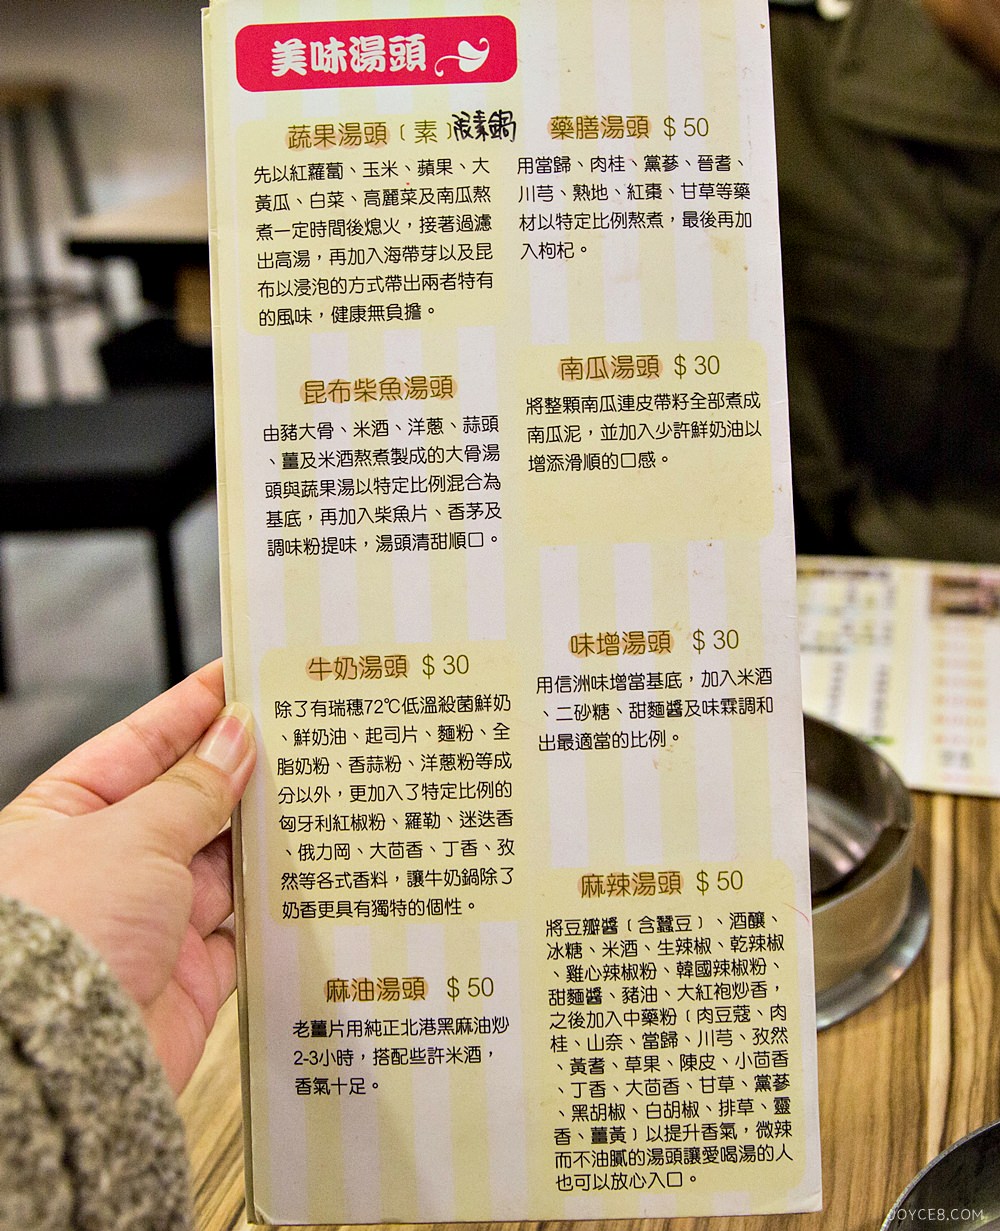 美味湯頭
蔬果湯頭﹝素﹞
先以紅蘿蔔、玉米、蘋果、大
黃瓜、白菜、高麗菜及南瓜熬
煮一定時間後熄火，接著過濾
出高湯，再加入海帶芽以及昆
布以浸泡的方式帶出兩者特有
的風味，健康無負擔。
昆布柴魚湯頭
由豬大骨、米酒、洋蔥、蒜頭
、薑及米酒熬煮製成的大骨湯
頭與蔬果湯以特定比例混合為
基底，再加入柴魚片、香茅及
調味粉提味，湯頭清甜順口。
牛奶湯頭 $30
除了有瑞穗72℃低溫殺菌鮮奶
、鮮奶油、起司片、麵粉、全
脂奶粉、香蒜粉、洋蔥粉等成
分以外，更加入了特定比例的
匈牙利紅椒粉、羅勒、迷迭香
、俄力岡、大茴香、丁香、孜
然等各式香料，讓牛奶鍋除了
奶香更具有獨特的個性。
麻油湯頭 $50
老薑片用純正北港黑麻油炒
2-3小時，搭配些許米酒，
香氣十足。
藥膳湯頭 $50
用當歸、肉桂、黨蔘、晉耆、
川芎、熟地、紅棗、甘草等藥
材以特定比例熬煮，最後再加
入枸杞。
南瓜湯頭 $30
將整顆南瓜連皮帶籽全部煮成
南瓜泥，並加入少許鮮奶油以
增添滑順的口感。
味增湯頭 $30
用信洲味增當基底，加入米酒
、二砂糖、甜麵醬及味霖調和
出最適當的比例。
麻辣湯頭 $50
將豆瓣醬﹝含蠶豆﹞、酒釀、
冰糖、米酒、生辣椒、乾辣椒
、雞心辣椒粉、韓國辣椒粉、
甜麵醬、豬油、大紅袍炒香，
之後加入中藥粉﹝肉豆蔻、肉
桂、山奈、當歸、川芎、孜然
、黃耆、草果、陳皮、小茴香
、丁香、大茴香、甘草、黨蔘
、黑胡椒、白胡椒、排草、靈
香、薑黃﹞以提升香氣，微辣
而不油膩的湯頭讓愛喝湯的人
也可以放心入口。
JOYCE8.COM